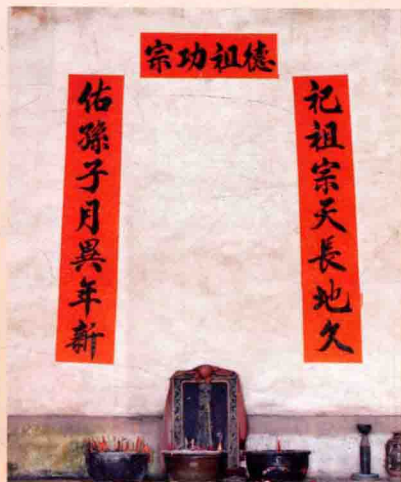 宗功祖德
祀祖宗天長地久
佑孫子月異年新